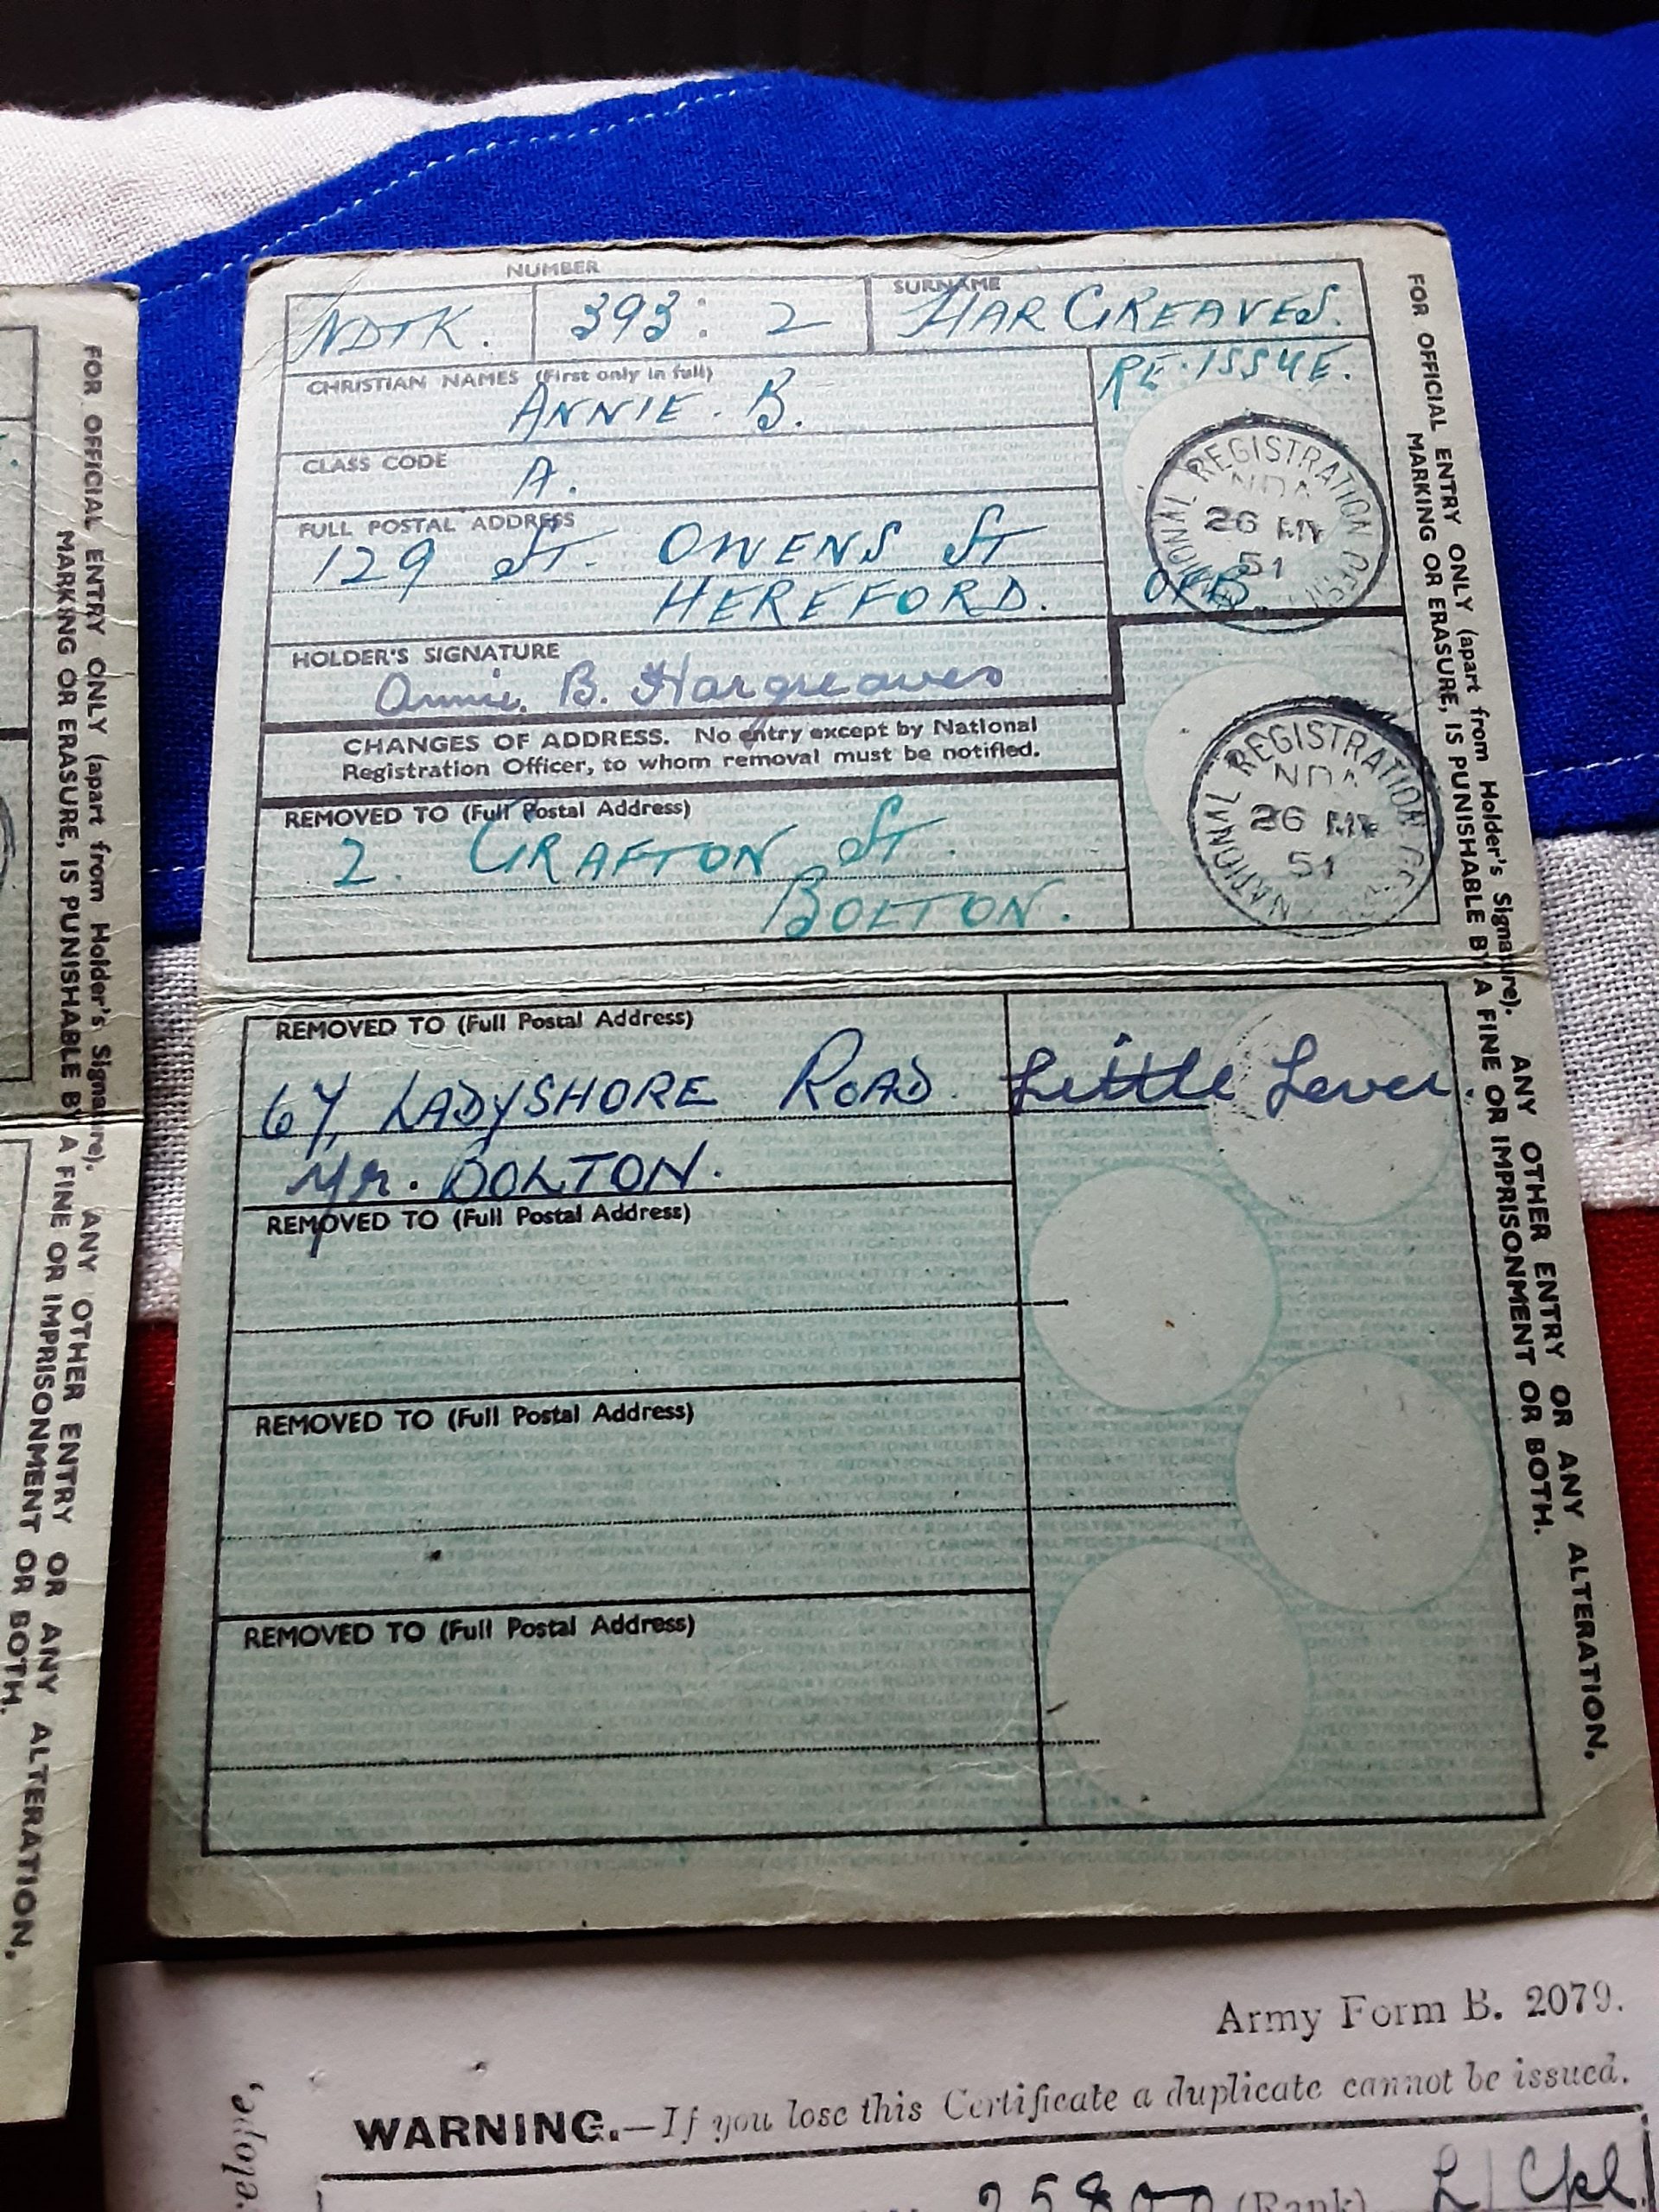 NUMBER
SURNAME
NDTK. 393: 2 HARGREAVES.
CHRISTIAN NAMES (First only in full)
ANNIE. B.
RE-ISSUE.
CLASS CODE
A.
FULL POSTAL ADDRESS
129 St. OWENS St
HEREFORD.
NATIONAL REGISTRATION
26
51
HOLDER'S SIGNATURE
Annie. B. Hargreaves
CHANGES OF ADDRESS. No entry except by National
Registration Officer, to whom removal must be notified.
REMOVED TO (Full Postal Address)
2. GRAFTON St.
BOLTON.
NATIONAL REGISTRATION
26
51
REMOVED TO (Full Postal Address)
67, LADYSHORE ROAD. Little Lever
Nr. BOLTON.
REMOVED TO (Full Postal Address)
REMOVED TO (Full Postal Address)
REMOVED TO (Full Postal Address)
FOR OFFICIAL ENTRY ONLY (apart from Holder's Signature). ANY OTHER ENTRY OR ANY ALTERATION,
MARKING OR ERASURE, IS PUNISHABLE BY A FINE OR IMPRISONMENT OR BOTH.
FOR OFFICIAL ENTRY ONLY (apart from Holder's Signature). ANY OTHER ENTRY OR ANY ALTERATION,
MARKING OR ERASURE, IS PUNISHABLE BY A FINE OR IMPRISONMENT OR BOTH.
Army Form B. 2079.
WARNING.—If you lose this Certificate a duplicate cannot be issued.
(Rank) L/Cpl